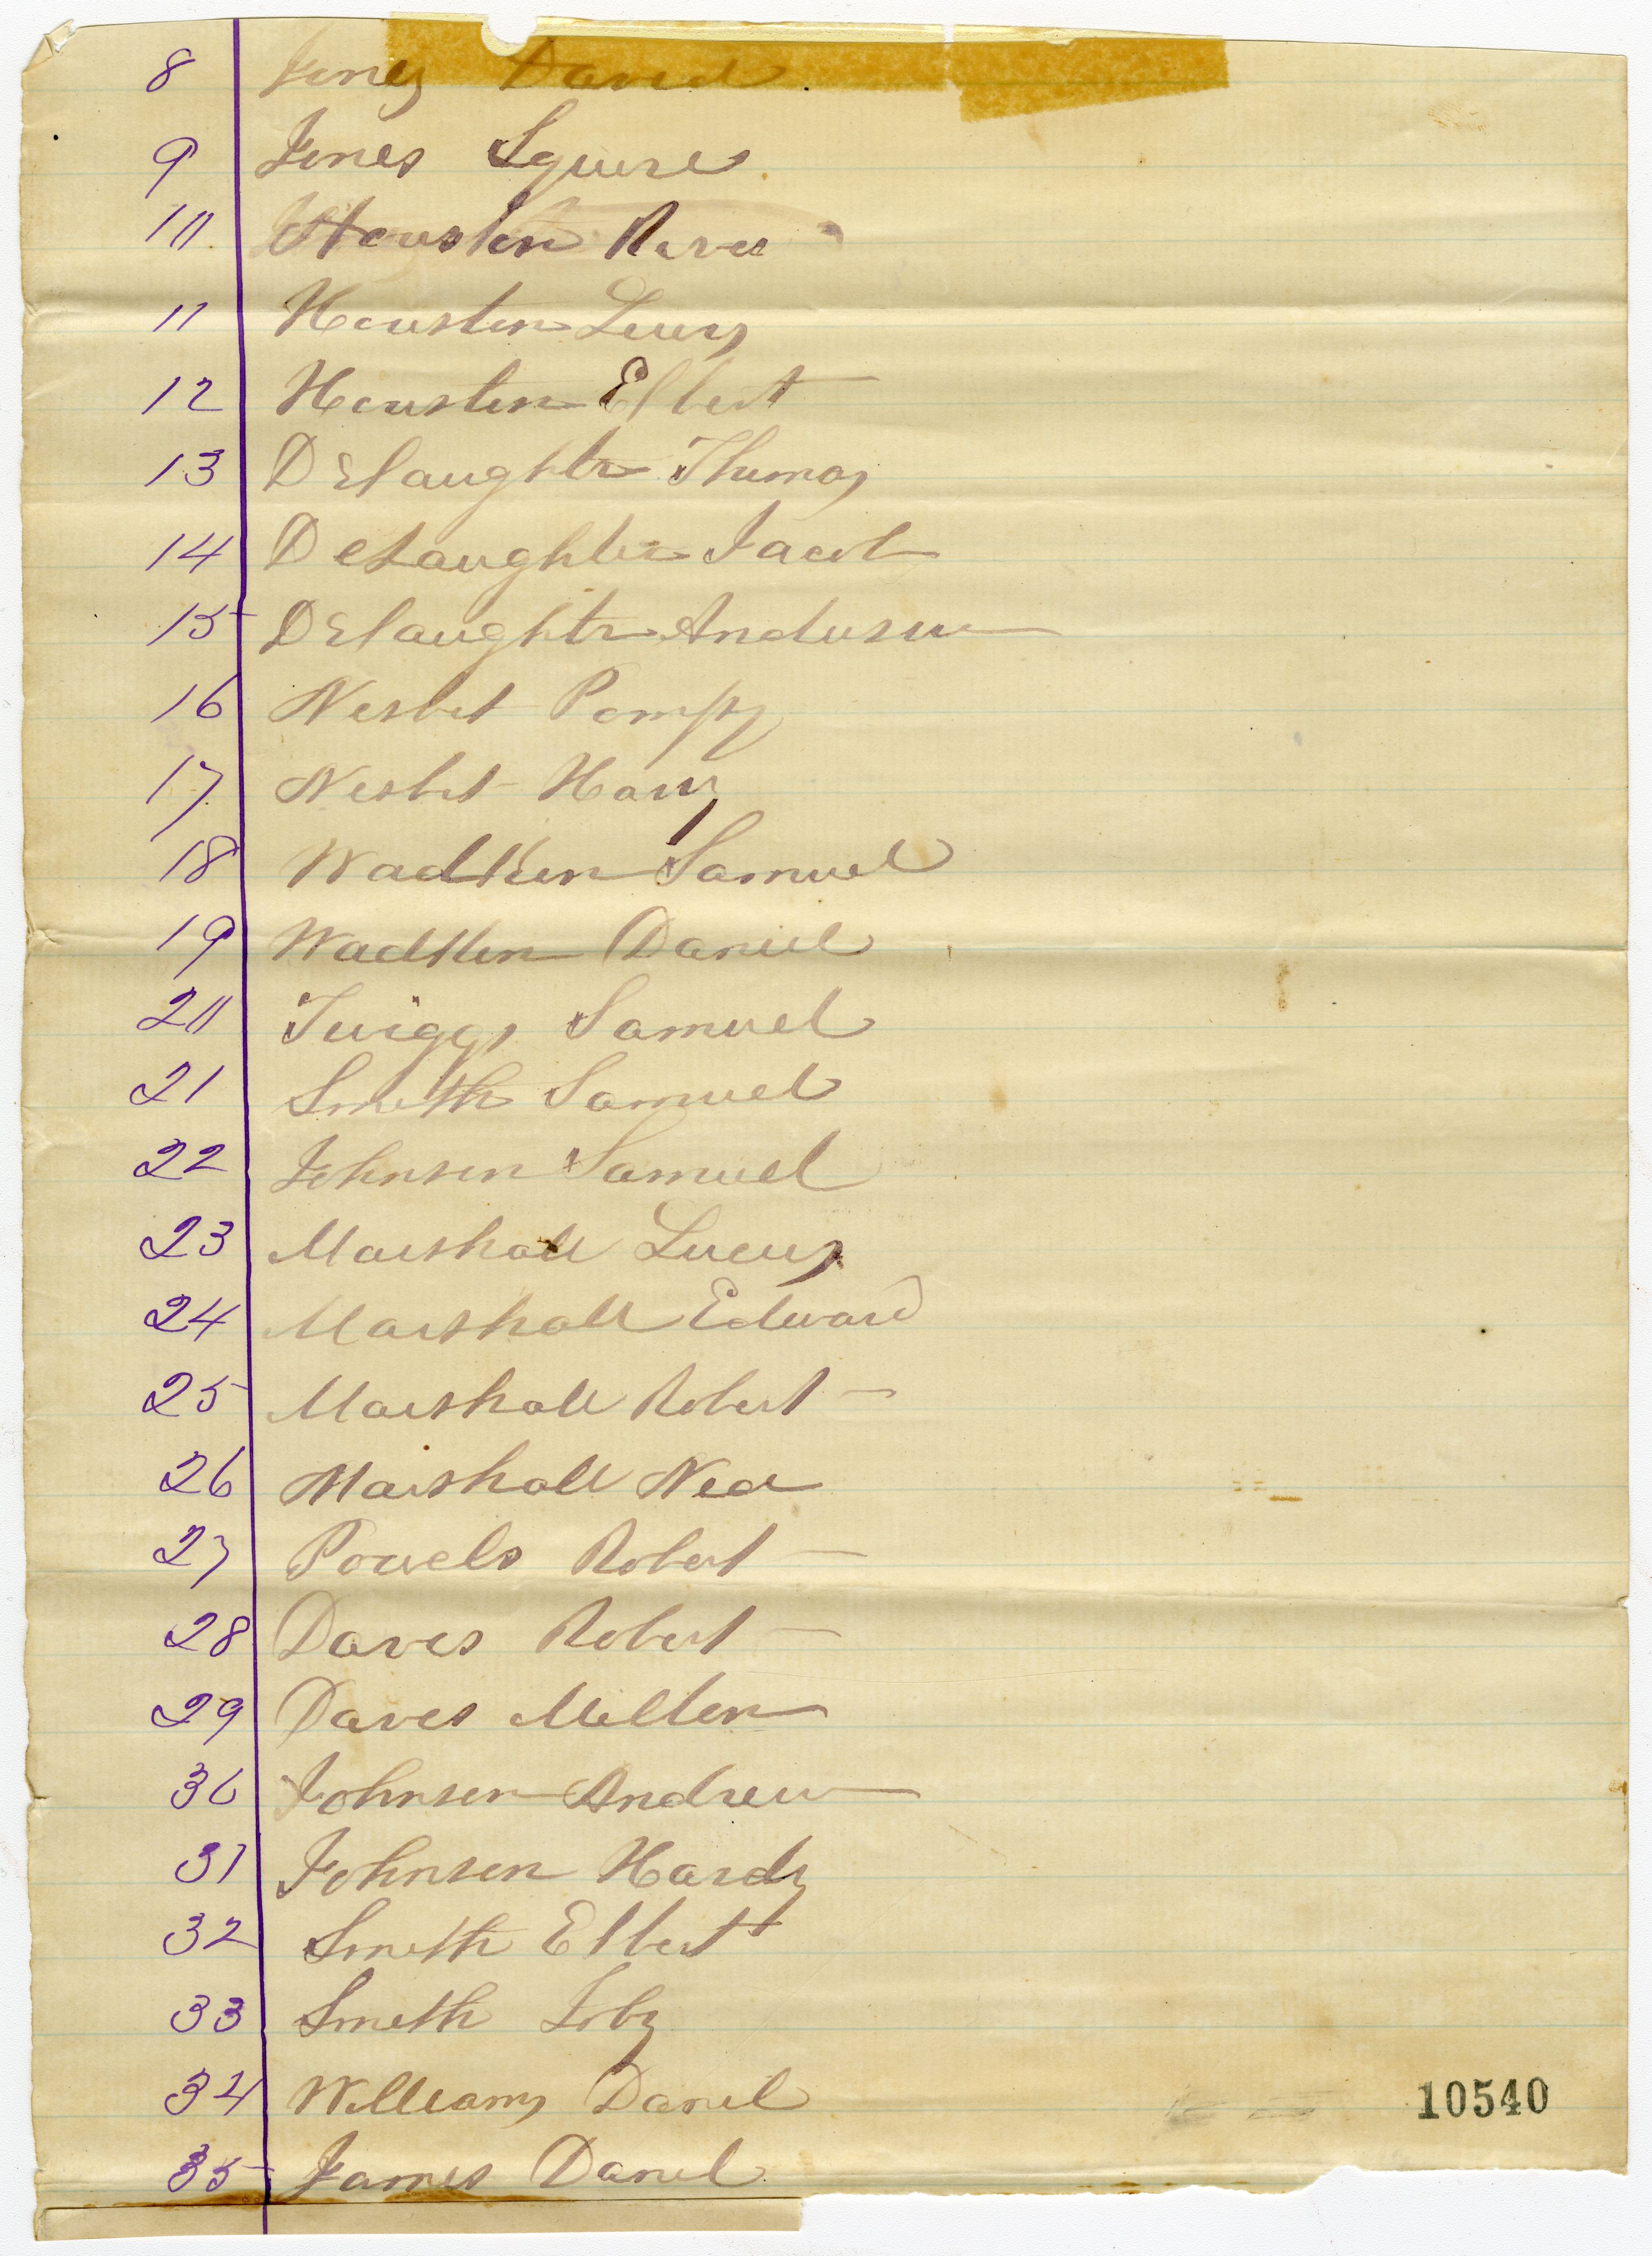 8 Jones David
9 Jones Squire
10 Houston
11 Houston Lewis
12 Houston Elbert
13 DeLaughter Thomas
14 DeLaughter Jacob
15 DeLaughter Anderson
16 Nesbit Pompy
17 Nesbit Harry
18 Wadkin Samuel
19 Wadkin Daniel
20 Twiggs Samuel
21 Smith Samuel
22 Johnson Samuel
23 Marshall Lucus
24 Marshall Edward
25 Marshall Robert
26 Marshall Ned
27 Powels Robert
28 Daves Robert
29 Daves Milton
30 Johnson Andrew
31 Johnson Hardy
32 Smith Elbert
33 Smith
34 Williams Danel
35 James Danel
10540